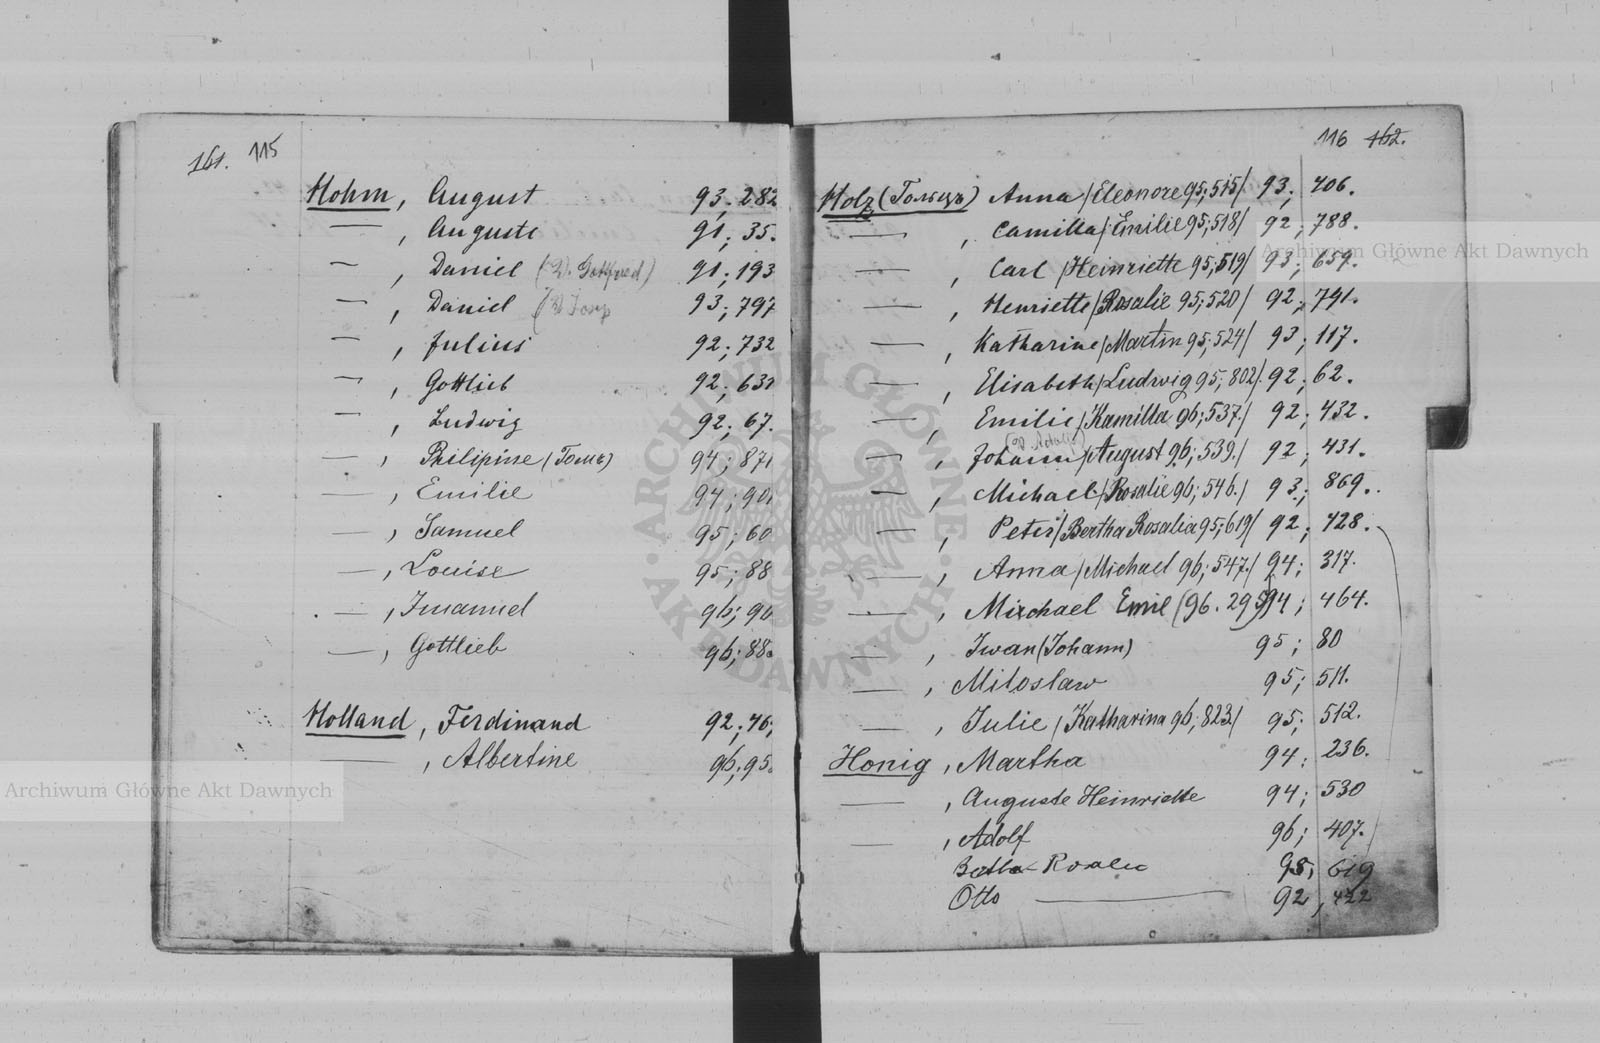 161. 115
Hohm, August 93; 282
—, Auguste 91; 35.
—, Daniel (2). Gottfried) 91; 193
—, Daniel 93; 797
—, Julius 92; 732
—, Gottlieb 92; 631
—, Ludwig 92; 67.
—, Philipine (Гомъ) 94; 871
—, Emilie 94; 90
—, Samuel 95; 60
—, Louise 95; 88
—, Imanuel 96; 90
—, Gottlieb 96; 88
Holland, Ferdinand 92; 46;
—, Albertine 96; 95.
116 162.
Holz (Гольцъ) Anna /Eleonore 95; 515/ 93; 406.
—, Camilla /Emilie 95; 518/ 92; 788.
—, Carl /Heinriette 95; 519/ 93; 659.
—, Henriette /Rosalie 95; 520/ 92; 791.
—, Katharine /Martin 95; 524/ 93; 117.
—, Elisabeth /Ludwig 95; 802/. 92; 62.
—, Emilie /Kamilla 96; 537./ 92; 432.
—, Johann /August 96; 539./ 92; 431.
—, Michael /Rosalie 96; 546./ 93; 869.
—, Peter /Bertha Rosalia 95; 619/ 92; 428.
—, Anna /Michael 96; 547./ 94; 317.
—, Michael Emil (96. 295) 94; 464.
—, Iwan (Johann) 95; 80
—, Miloslaw 95; 511.
—, Julie /Katharina 96; 823/ 95; 512.
Honig, Martha 94; 236.
—, Auguste Heinriette 94; 530
—, Adolf 96; 407.
95, 619
Otto — 92, 422
Archiwum Główne Akt Dawnych
Archiwum Główne Akt Dawnych
ARCHIWUM GŁÓWNE
AKT DAWNYCH